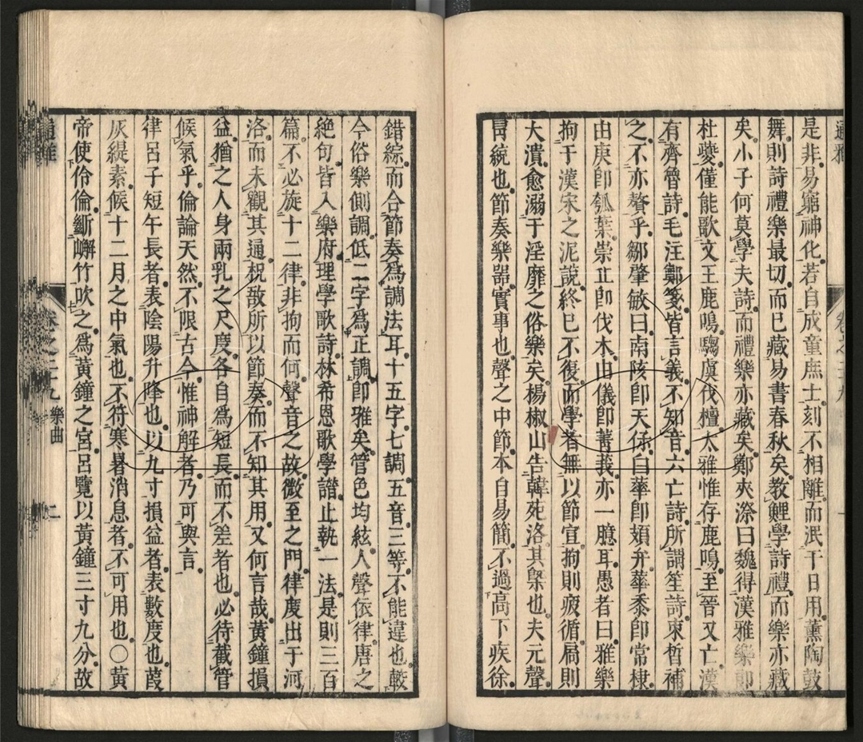 是非易窮神化若自成童庶士刻不相離而泯于日用薰陶鼓
舞則詩禮樂最切而已藏易書春秋矣教鯉學詩禮而樂亦藏
矣小子何莫學夫詩而禮樂亦藏矣鄭夾漈曰魏得漢雅樂郎
杜夔僅能歌文王鹿鳴騶虞伐檀太雅惟存鹿鳴至晉又亡漢
有齊魯詩毛注鄭箋皆言義不知音六亡詩所謂笙詩束晳補
之不亦贅乎鄒肇敏曰南陔卽天保白華卽頍弁華黍卽常棣
由庚卽瓠葉崇丘卽伐木由儀卽菁莪亦一臆耳愚者曰雅樂
拘于漢宋之泥說終巳不復而學者無以節宣拘則疲循屑則
大潰愈溺于淫靡之俗樂矣楊椒山告韓苑洛其槩也夫元聲
冐統也節奏樂器實事也聲之中節本自易簡不過高下疾徐
錯綜而合節奏爲調法耳十五字七調五音三等不能違也㪅
今俗樂側調低二字爲正調卽雅矣管色均絃人聲依律唐之
絶句皆入樂府理學歌詩林希恩歌學譜止執一法是則三百
篇不必旋十二律非拘而何聲音之故微至之門律度出于河
洛而未觀其通柷敔所以節奏而不知其用又何言哉黃鐘損
益猶之人身兩乳之尺度各自爲短長而不差者也必待截管
候氣乎倫論天然不限古今惟神解者乃可與言
律呂子短午長者表陰陽升降也以九寸損益者表數度也葭
灰緹素候十二月之中氣也不符寒暑消息者不可用也○黃
帝使伶倫斷嶰竹吹之爲黃鐘之宮呂覽以黃鐘三寸九分故
通雅
卷之二九 樂曲
二